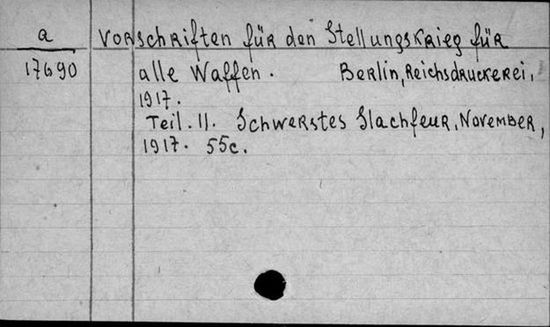 a Vorschriften für den Stellungskrieg für
17690 alle Waffen. Berlin, Reichsdruckerei,
1917.
Teil. II. Schwerstes Slachfeur, November,
1917. 55c.